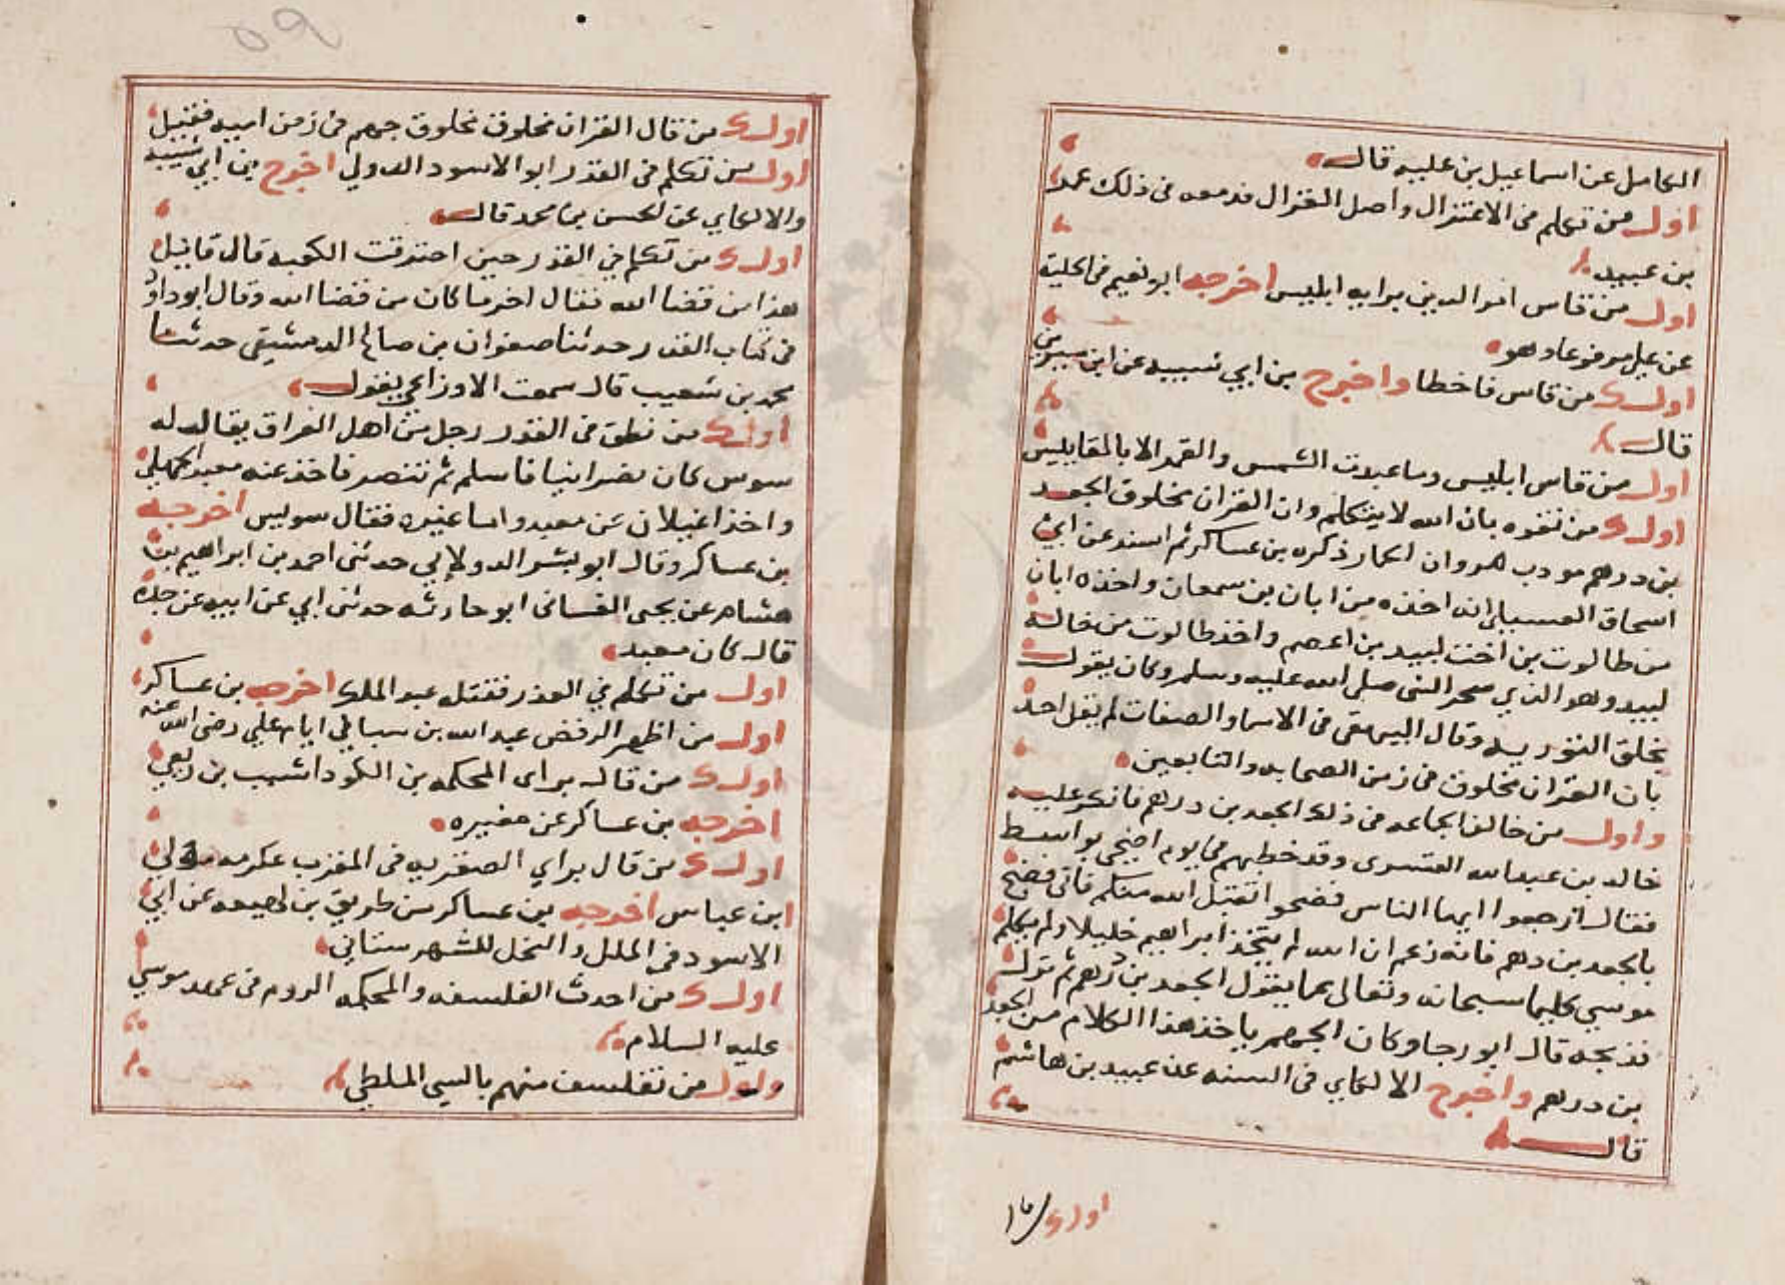 الكامل عن اسماعيل بن عليه قال
اول من تكلم في الاعتزال واصل الغزال فدمعه في ذلك عمد
بن عبيد
اول من قاس امر الدين برايه ابليس اخرجه ابو نعيم في الحلية
عن علي مرفوعا وهو
اول من قاس فاخطا واخرج بن ابي شيبه عن ابن سيرين
قال
اول من قاس ابليس وما عبدت الشمس والقمر الا بالمقاييس
اول من تفوه بان الله لا يتكلم وان القران مخلوق الجعد
بن درهم مودب مروان الحمار ذكره بن عساكر ثم اسند عن ابي
اسحاق انه اخذه من ابان بن سمعان واخذه ابان
من طالوت بن اخت لبيد بن اعصم واخذ طالوت من خاله
لبيد وهو الذي سحر النبي صلى الله عليه وسلم وكان يقول
بخلق التوريه وقال البيهقي في الاسما والصفات لم يقل احد
بان القران مخلوق في زمن الصحابه والتابعين
واول من خالف الجماعه في ذلك الجعد بن درهم فانكر عليه
خالد بن عبد الله القسري وقد خطبهم في يوم اضحى بواسط
فقال ارجعوا ايها الناس فضحوا تقبل الله منكم فاني مضح
بالجعد بن درهم فانه زعم ان الله لم يتخذ ابراهيم خليلا ولم يكلم
موسى كليما سبحانه وتعالى عما يقول الجعد بن درهم ثم نزل
فذبحه قال ابو رجا وكان الجهم ياخذ هذا الكلام من الجعد
بن درهم واخرج الالكاي في السنه عن عبيد بن هاشم
قال
اول
اول من قال القران مخلوق مخلوق جهم في زمن ابيه فقتيل
اول من تكلم في القدر ابو الاسود الدولي اخرج بن ابي شيبه
والالكاي عن لحسن بن محمد قال
اول من تكلم في القدر حين احترقت الكعبه قال قايل
هذا من قضا الله فقال اخر ما كان من قضا الله وقال ابو داود
في كتاب القدر حدثنا صفوان بن صالح الدمشيقي حدثنا
محمد بن شعيب قال سمعت الاوزاعي يقول
اول من نطق في القدر رجل من اهل العراق يقال له
سوس كان نصرانيا فاسلم ثم تنصر فاخذ عنه معبد الجهلي
واخذ غيلان عن معبد واما غيره فقال سويس اخرجه
بن عساكر وقال ابو بشر الدولابي حدثني احمد بن ابراهيم بن
هشام عن يحيى الغساني ابو حارثه حدثني ابي عن ابيه عن جده
قال كان معبد
اول من تكلم في القدر فقتله عبد الملك اخرجه بن عساكر
اول من اظهر الرفض عبد الله بن سبا في ايام علي رضى الله عنه
اول من قال براى المحكمه بن الكودا شبيب بن ربعي
اخرجه بن عساكر عن مغيره
اول من قال براي الصفريه في المغرب عكرمه مولى
ابن عباس اخرجه بن عساكر من طريق بن لهيعه عن ابي
الاسود في الملل والنحل للشهرستاني
اول من احدث الفلسفه والمحكمه الروم في عهد موسى
عليه السلام
واول من تفلسف منهم بالسي الملطي